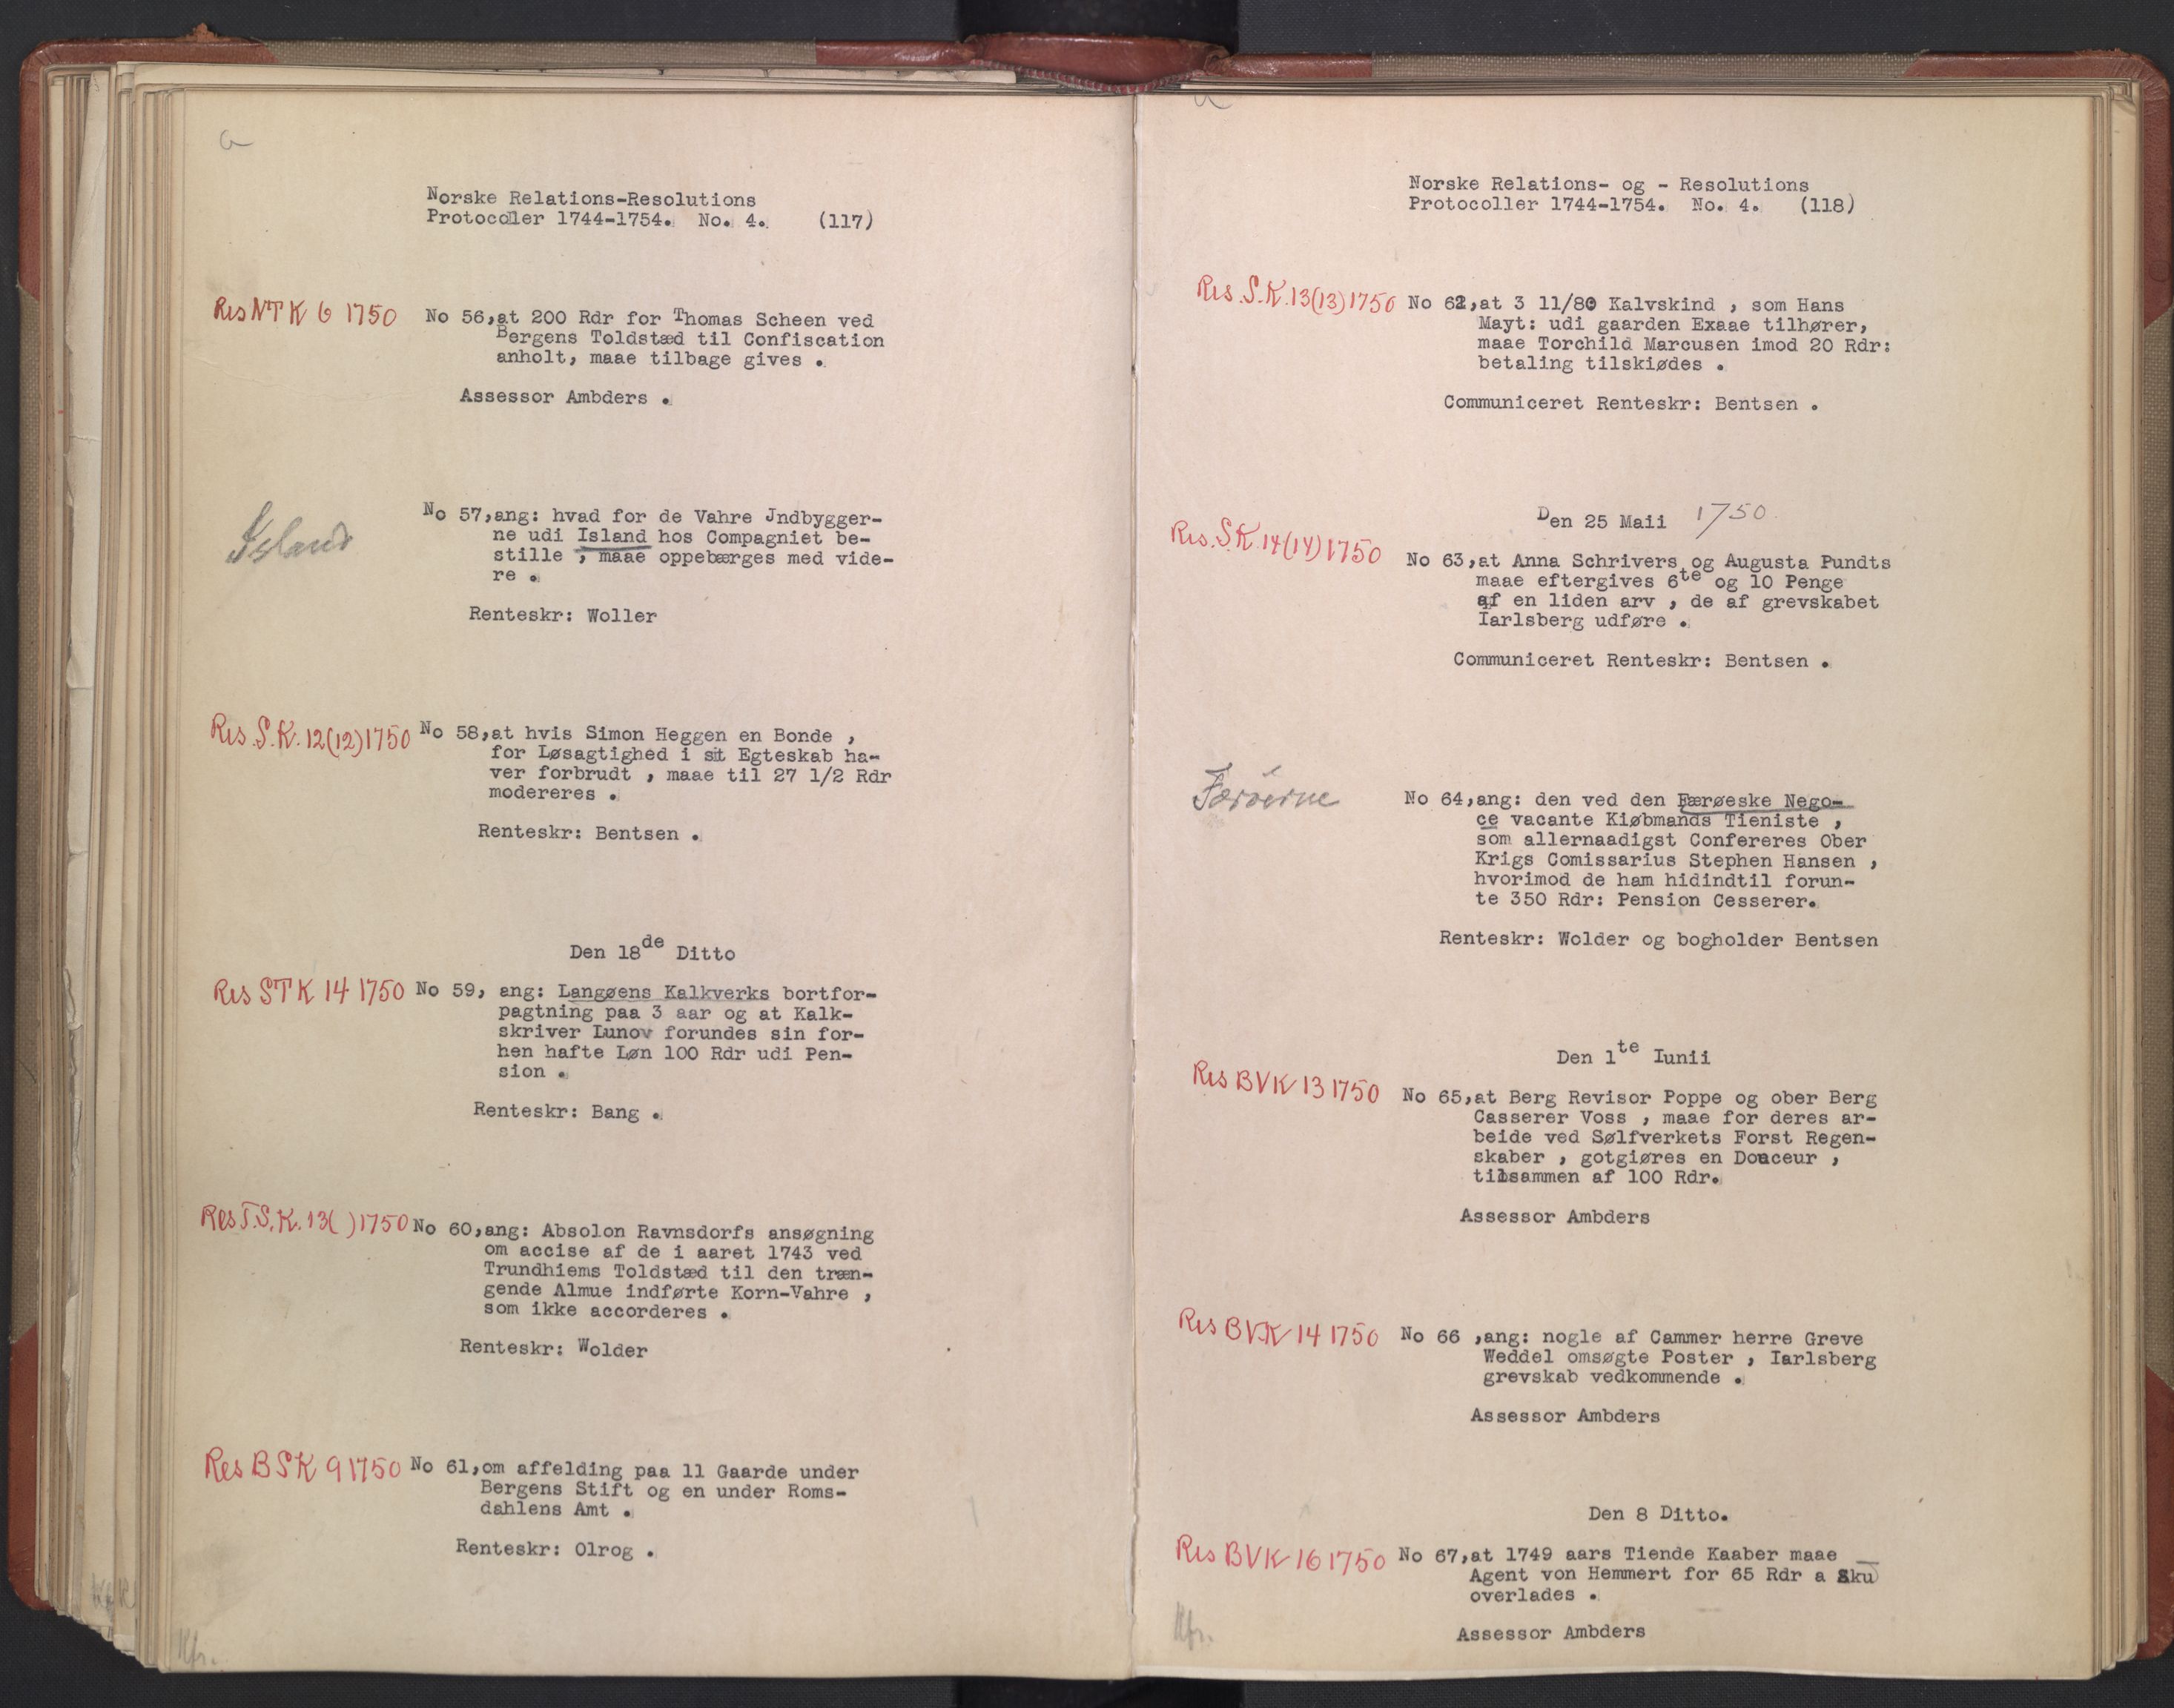 Norske Relations-Resolutions
Protocoller 1744-1754. No. 4. (117)
Res NTK 6 1750 No 56, at 200 Rdr for Thomas Scheen ved
Bergens Toldstæd til Confiscation
anholt, maae tilbage gives .
Assessor Ambders .
Island No 57, ang: hvad for de Vahre Jndbygger-
ne udi Island hos Compagniet be-
stille , maae oppebærges med vide-
re .
Renteskr: Woller
Res. S.K. 12(12)1750 No 58, at hvis Simon Heggen en Bonde ,
for Løsagtighed i sit Egteskab ha-
ver forbrudt , maae til 27 1/2 Rdr
modereres .
Renteskr: Bentsen .
Den 18de Ditto
Res STK 14 1750 No 59, ang: Langøens Kalkverks bortfor-
pagtning paa 3 aar og at Kalk-
skriver Lunov forundes sin for-
hen hafte Løn 100 Rdr udi Pen-
sion .
Renteskr: Bang .
Res T.S.K. 13( )1750 No 60, ang: Absolon Ravnsdorfs ansøgning
om accise af de i aaret 1743 ved
Trundhiems Toldstæd til den træn-
gende Almue indførte Korn-Vahre ,
som ikke accorderes .
Renteskr: Wolder
Res BSK 9 1750 No 61, om affelding paa 11 Gaarde under
Bergens Stift og en under Roms-
dahlens Amt .
Renteskr: Olrog .
Kfr.
Norske Relations- og - Resolutions
Protocoller 1744-1754. No. 4. (118)
Res. S.K. 13(13)1750 No 62, at 3 11/80 Kalvskind , som Hans
Mayt: udi gaarden Exaae tilhører,
maae Torchild Marcusen imod 20 Rdr:
betaling tilskiødes .
Communiceret Renteskr: Bentsen .
Den 25 Maii 1750
Res. S.K 14(14)1750 No 63, at Anna Schrivers og Augusta Pundts
maae eftergives 6te og 10 Penge
af en liden arv , de af grevskabet
Iarlsberg udføre .
Communiceret Renteskr: Bentsen .
Færöerne No 64, ang: den ved den Færøeske Nego-
ce vacante Kiøbmands Tieniste ,
som allernaadigst Confereres Ober
Krigs Comissarius Stephen Hansen ,
hvorimod de ham hidindtil forun-
te 350 Rdr: Pension Cesserer.
Renteskr: Wolder og bogholder Bentsen
Den 1te Iunii
Res BVK 13 1750 No 65, at Berg Revisor Poppe og ober Berg
Casserer Voss , maae for deres ar-
beide ved Sølfverkets Forst Regen-
skaber , gotgiøres en Douceur ,
tilsammen af 100 Rdr.
Assessor Ambders
Res BVK 14 1750 No 66 , ang: nogle af Cammer herre Greve
Weddel omsøgte Poster , Iarlsberg
grevskab vedkommende .
Assessor Ambders
Den 8 Ditto.
Res BVK 16 1750 No 67, at 1749 aars Tiende Kaaber maae
Agent von Hemmert for 65 Rdr a Sku
overlades .
Assessor Ambders
Kfr.